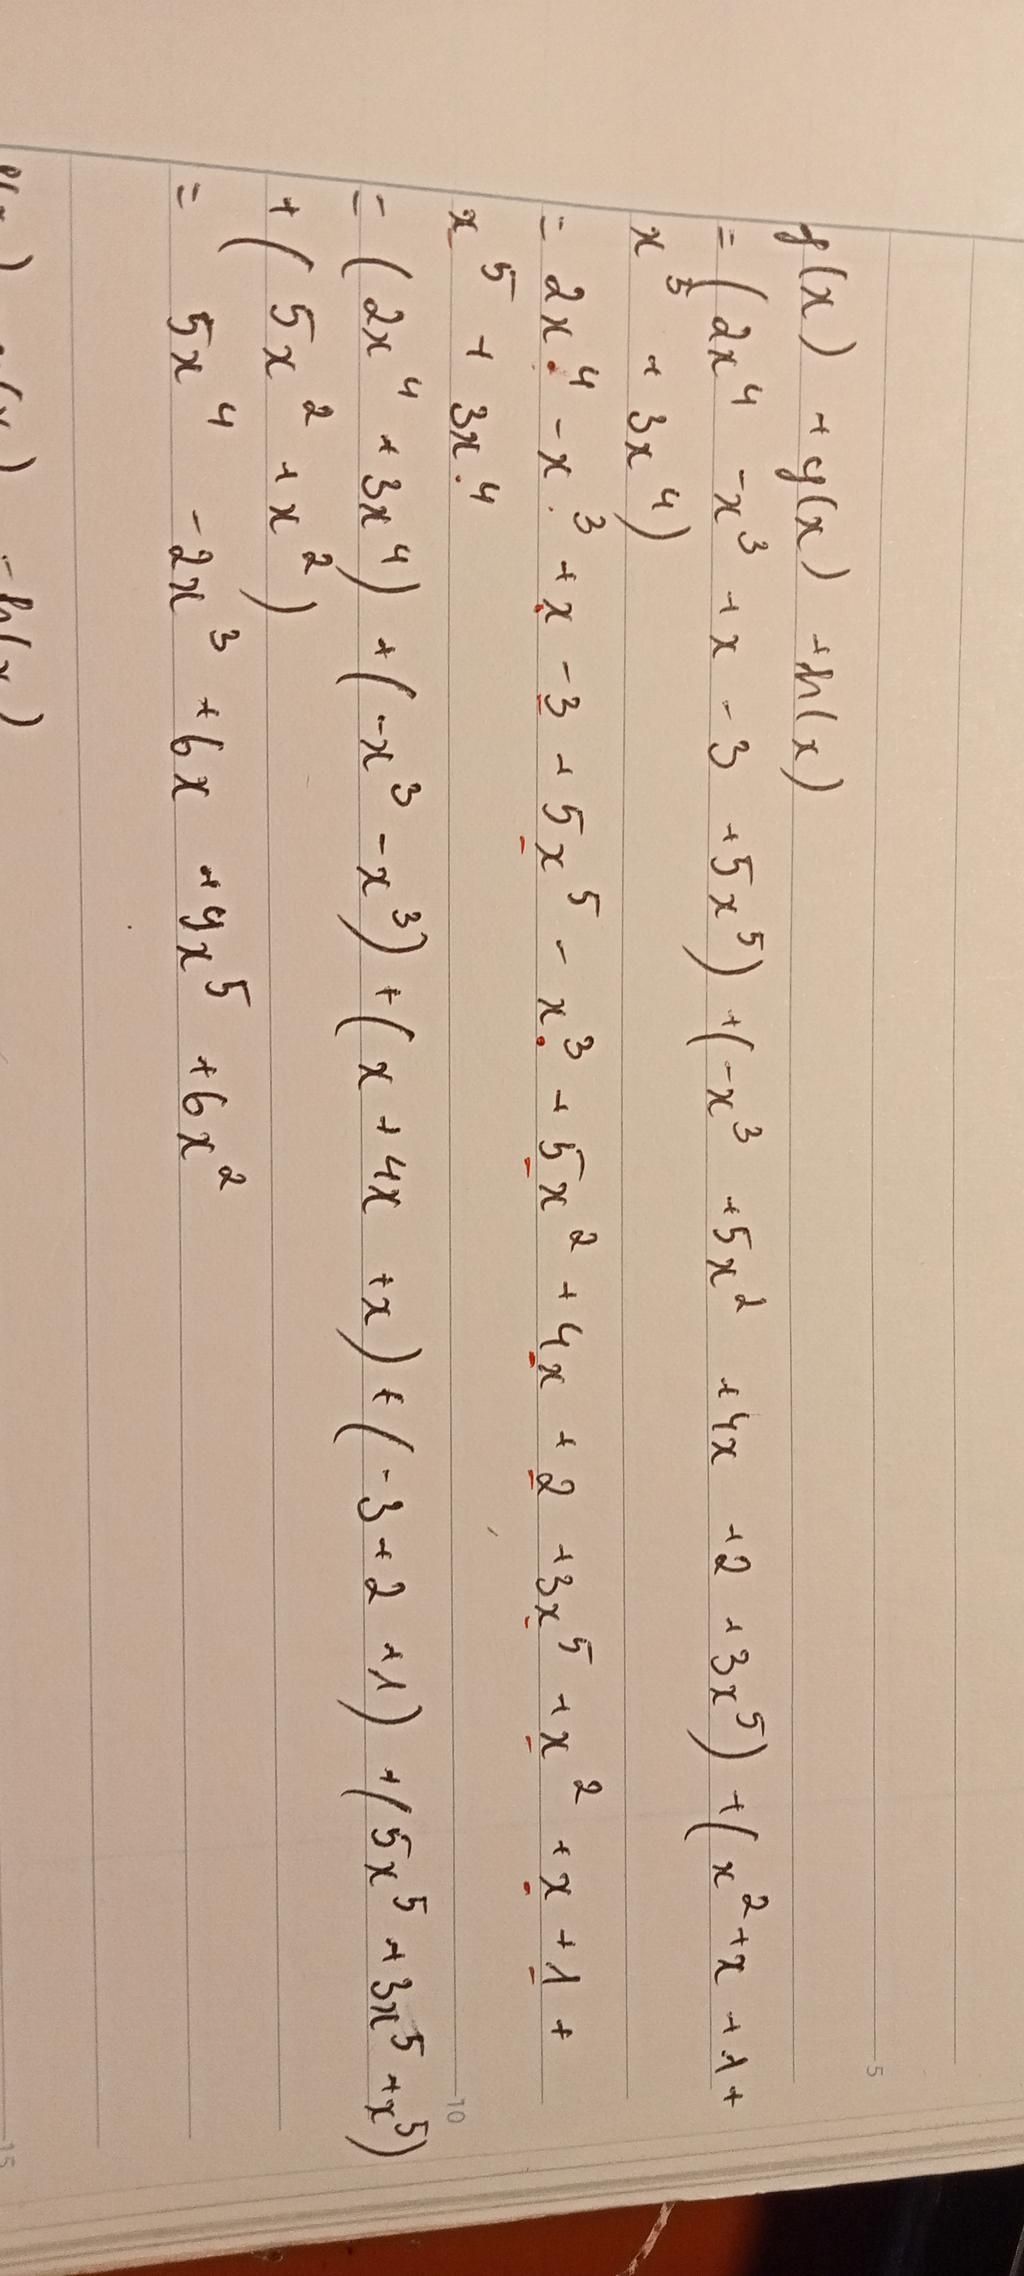 f(x) + g(x) + h(x)
= (2x⁴ - x³ + x - 3 + 5x⁵) + (-x³ + 5x² + 4x + 2 + 3x⁵) + (x² + x + 1 +
x⁵ + 3x⁴)
= 2x⁴ - x³ + x - 3 + 5x⁵ - x³ + 5x² + 4x + 2 + 3x⁵ + x² + x + 1 +
x⁵ + 3x⁴
= (2x⁴ + 3x⁴) + (-x³ - x³) + (x + 4x + x) + (-3 + 2 + 1) + (5x⁵ + 3x⁵ + x⁵)
+ (5x² + x²)
= 5x⁴ - 2x³ + 6x + 9x⁵ + 6x²
- h(x)
5
10
15